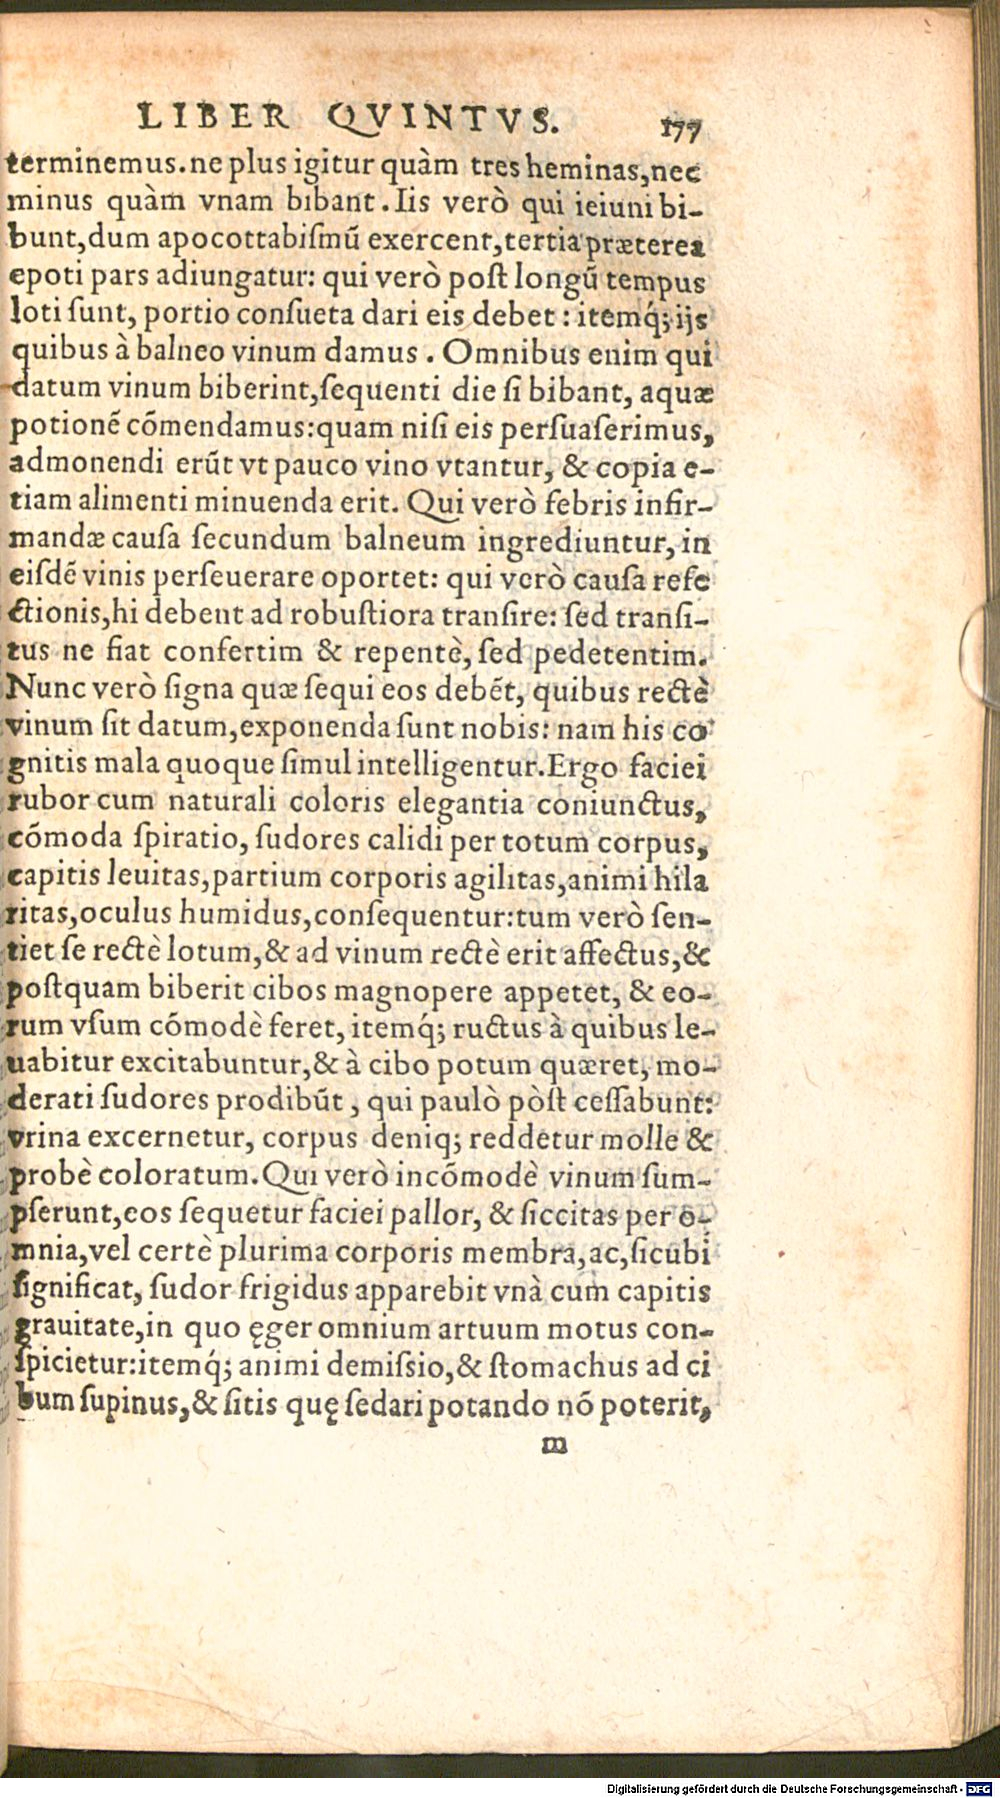 LIBER QVINTVS. 177
terminemus. ne plus igitur quàm tres heminas, nec
minus quàm vnam bibant. Iis verò qui ieiuni bi-
bunt, dum apocottabiſmũ exercent, tertia præterea
epoti pars adiungatur: qui verò poſt longũ tempus
loti ſunt, portio conſueta dari eis debet: itemq́; ijs
quibus à balneo vinum damus. Omnibus enim qui
datum vinum biberint, ſequenti die ſi bibant, aquæ
potionẽ cõmendamus: quam niſi eis perſuaſerimus,
admonendi erũt vt pauco vino vtantur, & copia e-
tiam alimenti minuenda erit. Qui verò febris infir-
mandæ cauſa ſecundum balneum ingrediuntur, in
eiſdẽ vinis perſeuerare oportet: qui verò cauſa refe
ctionis, hi debent ad robuſtiora tranſire: ſed tranſi-
tus ne fiat confertim & repentè, ſed pedetentim.
Nunc verò ſigna quæ ſequi eos debẽt, quibus rectè
vinum ſit datum, exponenda ſunt nobis: nam his co
gnitis mala quoque ſimul intelligentur. Ergo faciei
rubor cum naturali coloris elegantia coniunctus,
cõmoda ſpiratio, ſudores calidi per totum corpus,
capitis leuitas, partium corporis agilitas, animi hila
ritas, oculus humidus, conſequentur: tum verò ſen-
tiet ſe rectè lotum, & ad vinum rectè erit affectus, &
poſtquam biberit cibos magnopere appetet, & eo-
rum vſum cõmodè feret, itemq́; ructus à quibus le-
uabitur excitabuntur, & à cibo potum quæret, mo-
derati ſudores prodibũt, qui paulò pòſt ceſſabunt:
vrina excernetur, corpus deniq; reddetur molle &
probè coloratum. Qui verò incõmodè vinum ſum-
pſerunt, eos ſequetur faciei pallor, & ſiccitas per o-
mnia, vel certè plurima corporis membra, ac, ſicubi
ſignificat, ſudor frigidus apparebit vnà cum capitis
grauitate, in quo ęger omnium artuum motus con-
ſpicietur: itemq́; animi demiſsio, & ſtomachus ad ci
bum ſupinus, & ſitis quę ſedari potando nõ poterit,
m
Digitalisierung gefördert durch die Deutsche Forschungsgemeinschaft - DFG